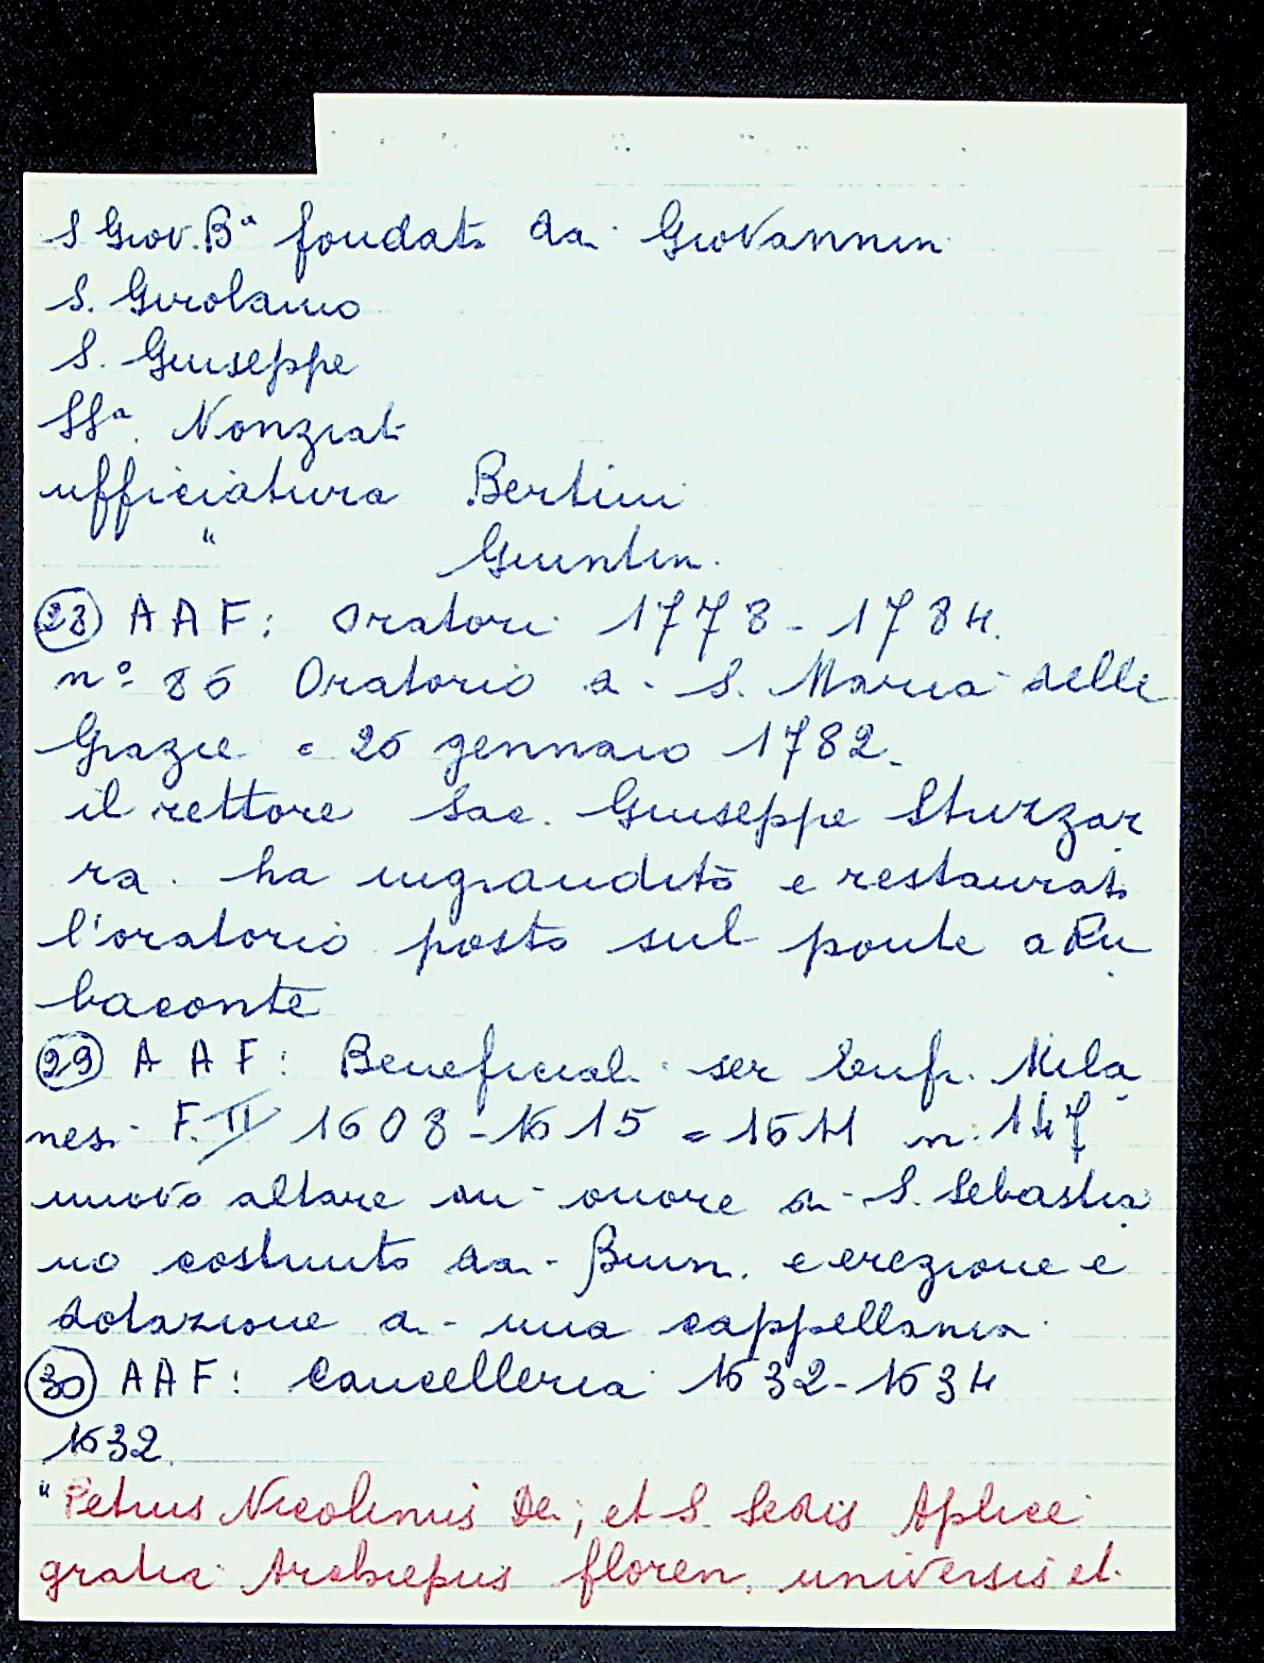 S Giov. Bª fondato da Giovannini
S. Girolamo
S. Giuseppe
SSª. Nonziata
ufficiatura Bertini
" Giuntini.
(28) A A F: Oratori 1778-1784.
nº 86 Oratorio di S. Maria delle
Grazie = 26 gennaio 1782.
il rettore Sac. Giuseppe Stuzzar
ra. ha ingrandito e restaurato
l'oratorio posto sul ponte a Ru
baconte
(29) A A F: Beneficiali ser Mila
nesi F. II 1608-1615 = 1611 n. 147
nuovo altare in onore di S. Sebastia
no costruito da e erezione e
dotazione di una cappellania
(30) A A F: Cancelleria 1632-1634
1632.
"Petrus Nicolinus Dei, et S. Sedis Aplice
gratia Archiepus floren. universis et